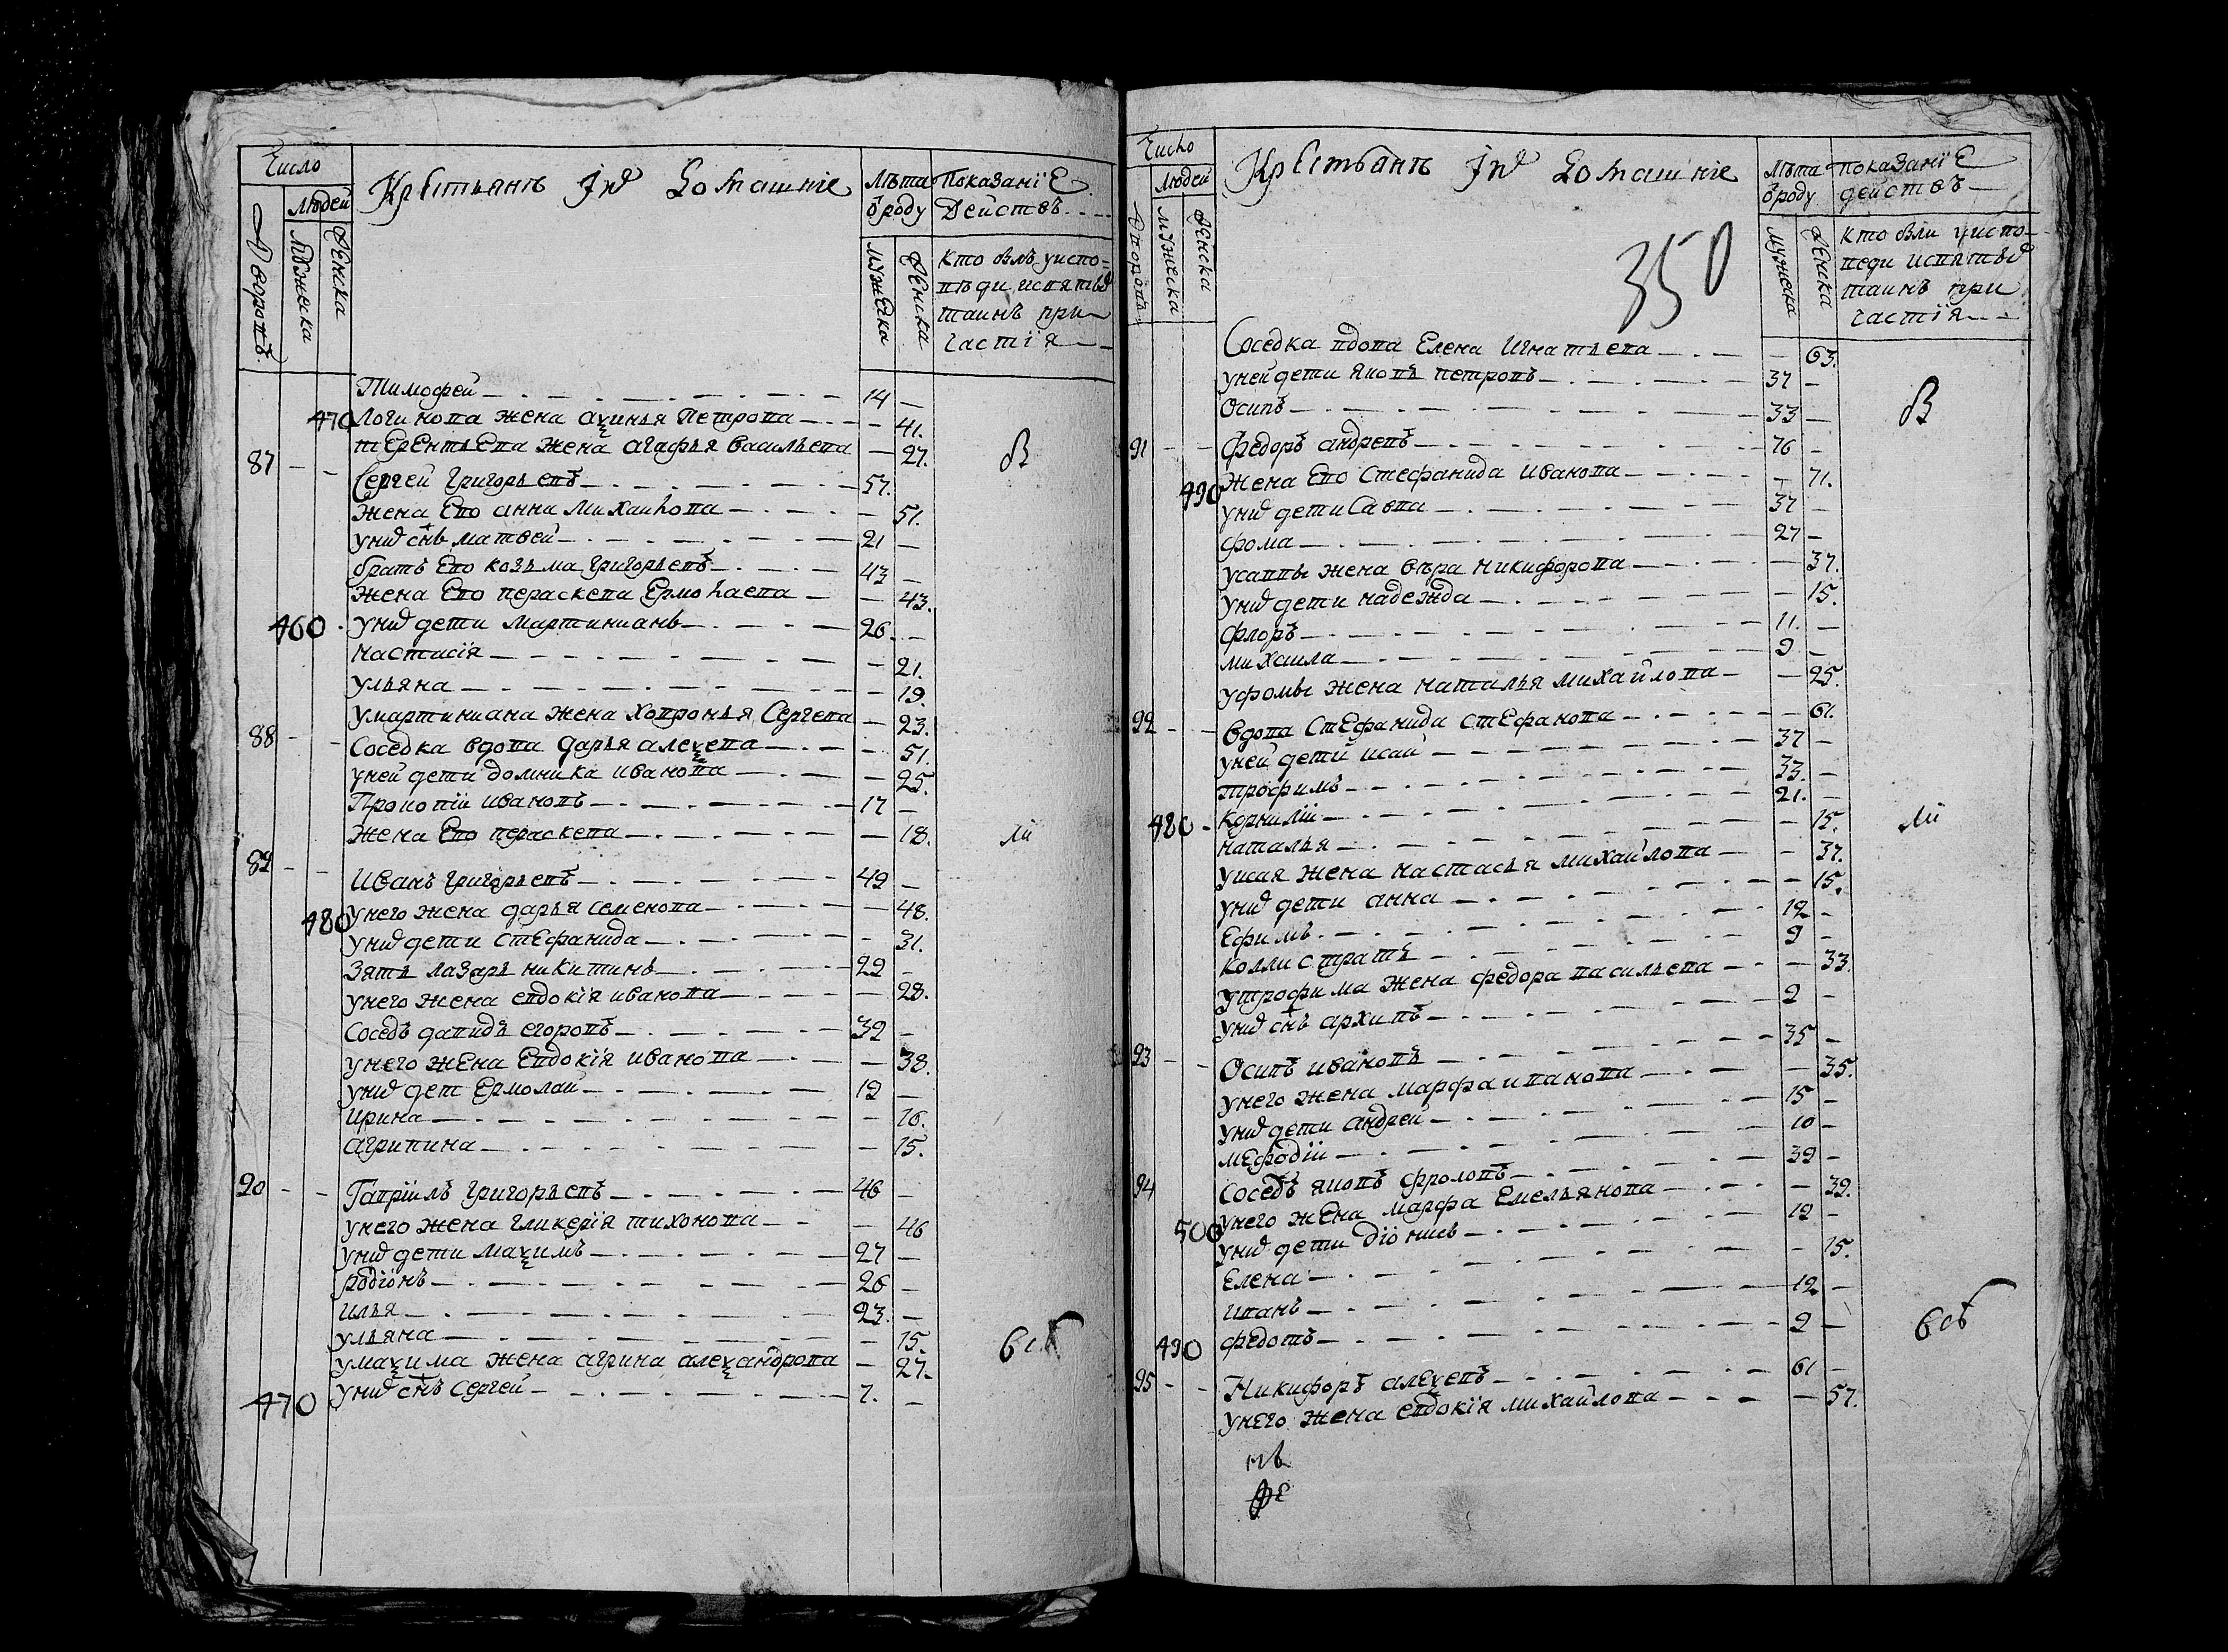 Число
Людей
Дворовъ
Мужска
Женска
Крестьянъ Ихъ Домашніе
Лѣта
ѿроду
Мужеска
Женска
Показаніе
Действъ
кто былъ уиспо=
вѣди исвятыхъ
таинъ при
частія
Тимофей 14
470 Логинова жена аѯинья Петрова 41.
терентьева жена агафья васильева 27.
87 Сергей Григорьевъ 57.
жена Ево анна Михаилова 51.
унихъ снъ матвей 21
братъ Ево козьма григорьевъ 43
жена Ево пераскева Ермолаева 43.
460 унихъ дети мартинианъ 26
настасія 21.
ульяна 19.
умартиниана жена ховронья Сергева 23.
88 Соседка вдова дарья алеѯева 51.
уней дети домника иванова 25.
Прокопіи ивановъ 17
жена Ево пераскева 18.
89 Иванъ григорьевъ 49
480 унего жена дарья семенова 48.
унихъ дети стефанида 31.
зять лазарь никитинъ 29
унего жена евдокія иванова 28.
соседъ давидъ егоровъ 39
унего жена Евдокія иванова 38.
унихъ дет Ермолай 19
ирина 16.
агрипина 15.
90 Гавріилъ григорьевъ 46
унего жена гликерія тихонова 46
унихъ дети маѯимъ 27
родіонъ 26
илья 23.
ульяна 15.
умаѯима жена агрина алеѯандрова 27.
470 унихъ снъ сергей 7.
В
ли
Число
Людей
Дворовъ
мужеска
женска
Крестьянъ Ихъ Домашніе
350
Лѣта
ѿроду
мужеска
женска
показаніе
действъ
кто были уиспо-
веди исвятыхъ
таинъ при
частія
Соседка вдова Елена Игнатьева 63.
уней дети яковъ петровъ 37
Осипъ 33
91 федоръ андревъ 76
490 жена Ево Стефанида иванова 71.
унихъ дети Савва 37
фома 27
усаввы жена вѣра никифорова 37.
унихъ дети надежда 15.
флоръ 11.
михаила 9
уфомы жена наталья михайлова 25.
92 вдова Стефанида стефанова 61.
уней дети исаи 37
трофимъ 33.
корниліи 21.
480 наталья 15.
уисая жена настасья михайлова 37.
унихъ дети анна 15.
Ефимъ 12
коллистратъ 9
утрофима жена федора васильева 33.
унихъ снъ архипъ 9
93 Осипъ ивановъ 35
унего жена марфа иванова 35.
унихъ дети андрей 15
мефодіи 10
94 соседъ яковъ фроловъ 39
500 унего жена марфа Емельянова 39.
унихъ дети діонись 19
Елена 15.
иванъ 12
490 федотъ 9
95 Никифоръ алеѯевъ 61
унего жена евдокія михайлова 57.
В
ли